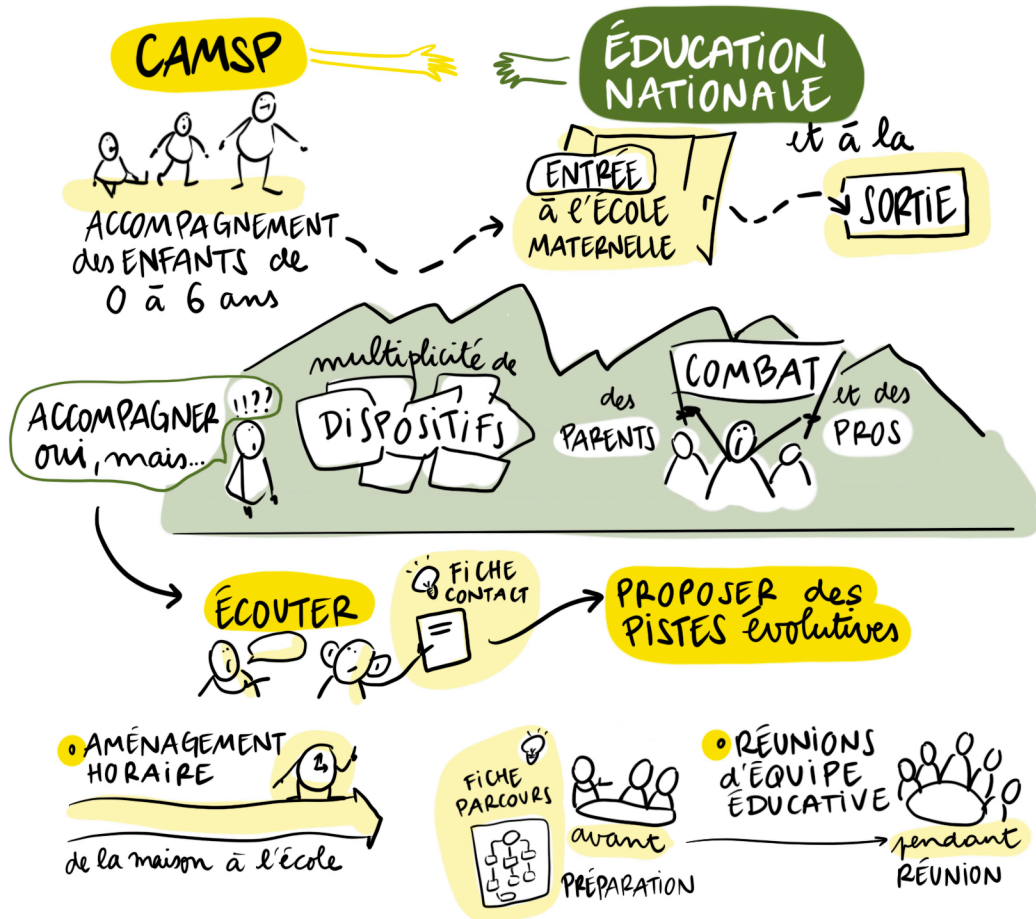 CAMSP
ÉDUCATION
NATIONALE
ACCOMPAGNEMENT
des ENFANTS de
0 à 6 ans
ENTRÉE
à l'ÉCOLE
MATERNELLE
et à la
SORTIE
ACCOMPAGNER
oui, mais...
!!??
multiplicité de
DISPOSITIFS
COMBAT
des
PARENTS
et des
PROS
ÉCOUTER
FICHE
CONTACT
PROPOSER des
PISTES évolutives
AMÉNAGEMENT
HORAIRE
de la maison à l'école
FICHE
PARCOURS
avant
PRÉPARATION
RÉUNIONS
d'ÉQUIPE
ÉDUCATIVE
pendant
RÉUNION